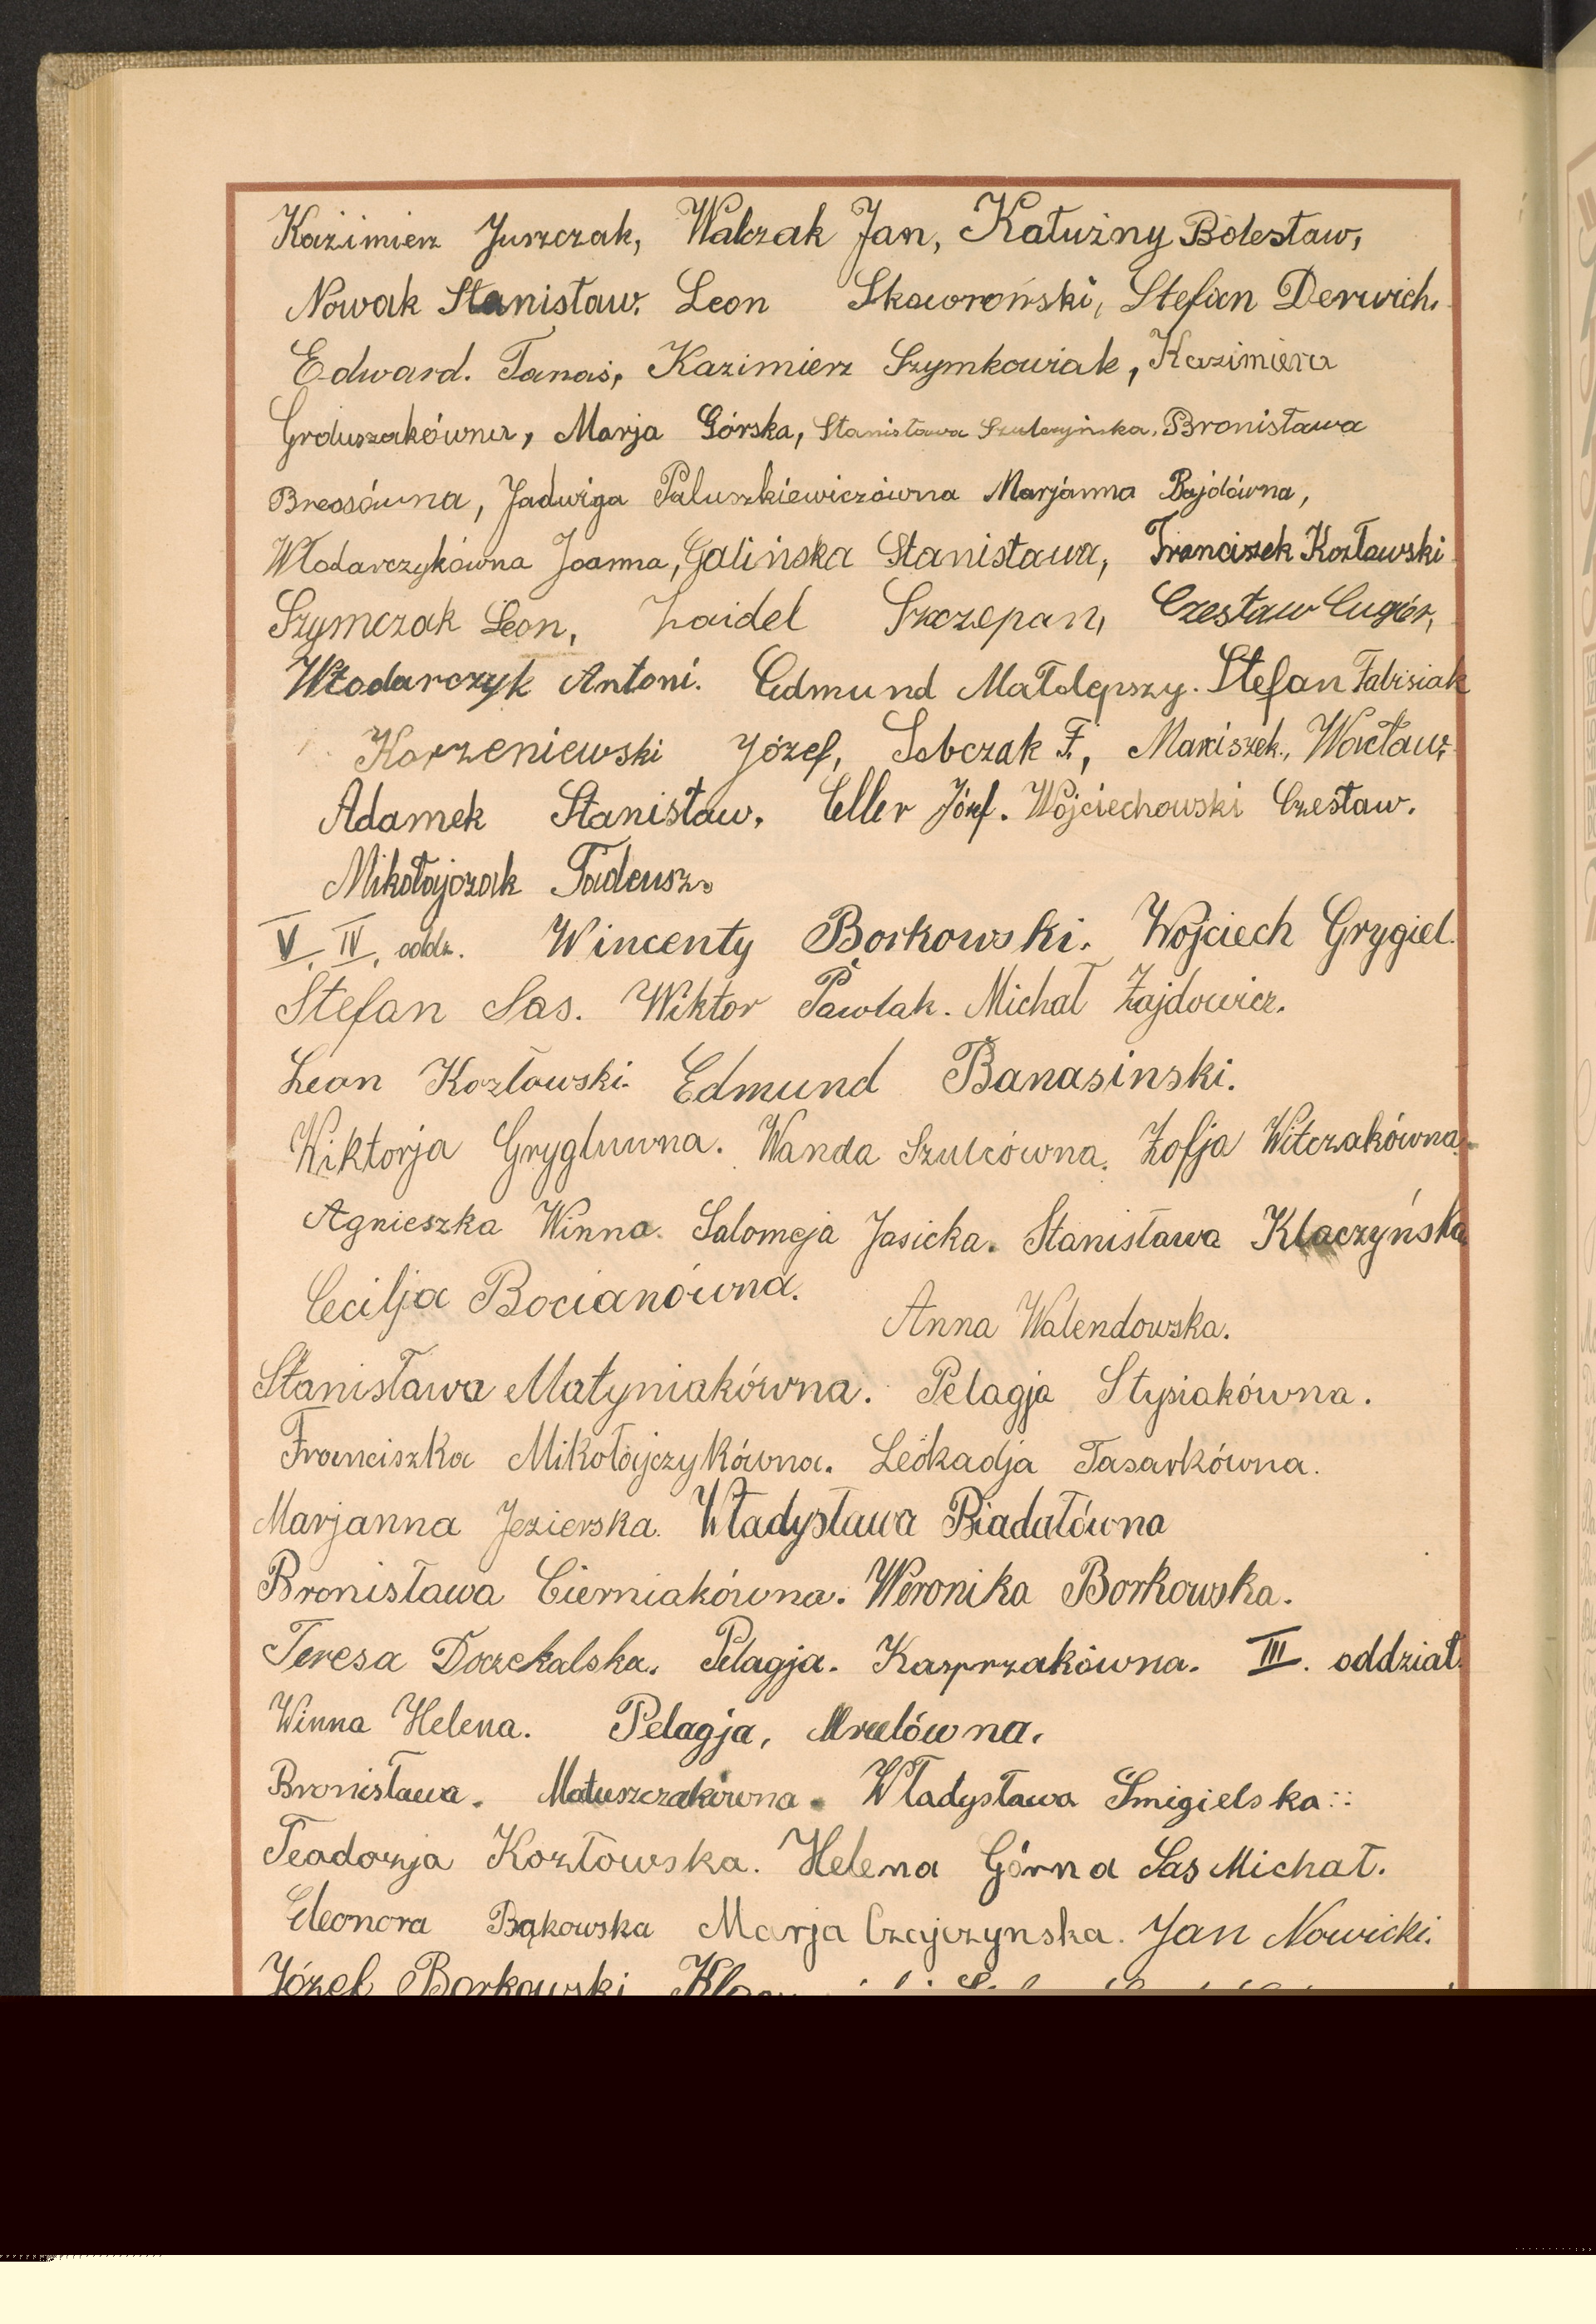 Kazimierz Jurszczak, Walczak Jan, Kałużny Bolesław,
Nowak Stanisław. Leon Skowroński, Stefan Derwich.
Edward. Tanaś, Kazimierz Szymkowiak, Kazimiera
Groluszakówna, Marja Górska, Stanisława Szulczyńska. Bronisława
Breosówna, Jadwiga Paluszkiewiczówna Marjanna Bajdówna,
Włodarczykówna Joanna, Galińska Stanisława, Franciszek Kozłowski
Szymczak Leon, Laidel Szczepan, Czesław Cugier,
Włodarczyk Antoni. Edmund Małolepszy. Stefan Fabisiak
Korzeniewski Józef, Sobczak F., Marciszek, Wacław
Adamek Stanisław, Eller Józef. Wojciechowski Czesław.
Mikołajczak Tadeusz.
V, IV, oddz. Wincenty Borkowski. Wojciech Grygiel.
Stefan Sas. Wiktor Pawlak. Michał Zajdowicz.
Leon Kozłowski. Edmund Banasinski.
Wiktorja Grygluwna. Wanda Szulcówna. Zofja Witczakówna.
Agnieszka Winna. Salomeja Jasicka. Stanisława Klaczyńska
Cecilja Bocianówna. Anna Walendowska.
Stanisława Matyniakówna. Pelagja Stysiakówna.
Franciszka Mikołajczykówna. Leokadja Tasarkówna.
Marjanna Jezierska. Władysława Biadałówna
Bronisława Cierniakówna. Weronika Borkowska.
Teresa Doczekalska. Pelagja. Kasprzakówna. III. oddział.
Winna Helena. Pelagja, Mrulówna.
Bronisława. Matuszczakówna. Władysława Śmigielska::
Teodozja Kozłowska. Helena Górna Sas Michał.
Eleonora Bąkowska Marja Czajczynska. Jan Nowicki.
Józef Borkowski